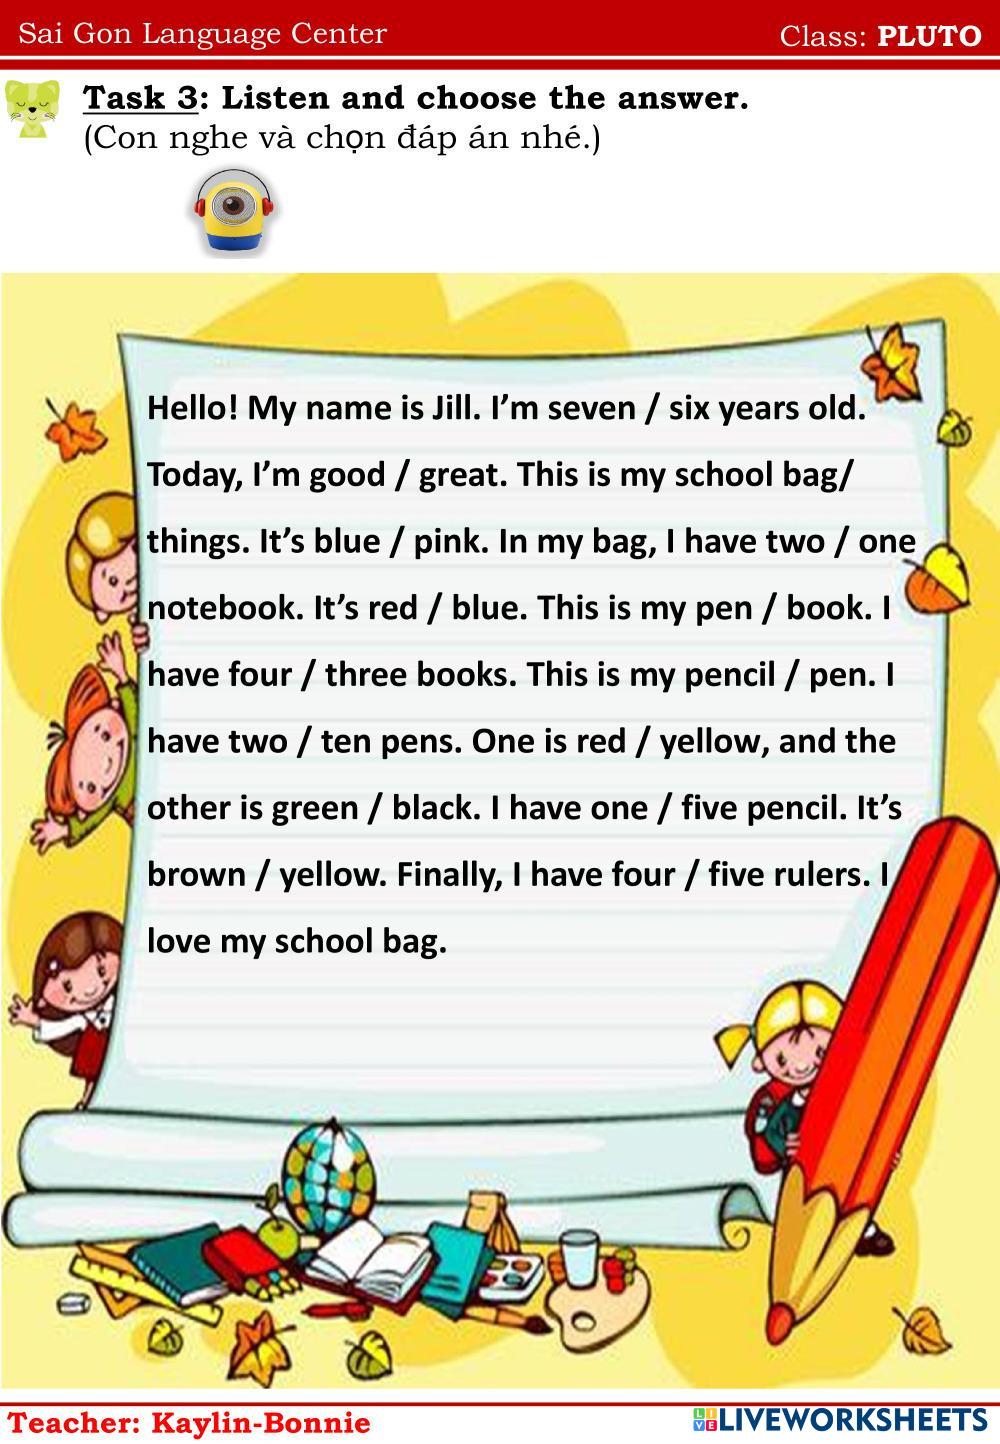 Sai Gon Language Center
Class: PLUTO
Task 3: Listen and choose the answer.
(Con nghe và chọn đáp án nhé.)
Hello! My name is Jill. I’m seven / six years old.
Today, I’m good / great. This is my school bag/
things. It’s blue / pink. In my bag, I have two / one
notebook. It’s red / blue. This is my pen / book. I
have four / three books. This is my pencil / pen. I
have two / ten pens. One is red / yellow, and the
other is green / black. I have one / five pencil. It’s
brown / yellow. Finally, I have four / five rulers. I
love my school bag.
Teacher: Kaylin-Bonnie
LIVE LIVEWORKSHEETS